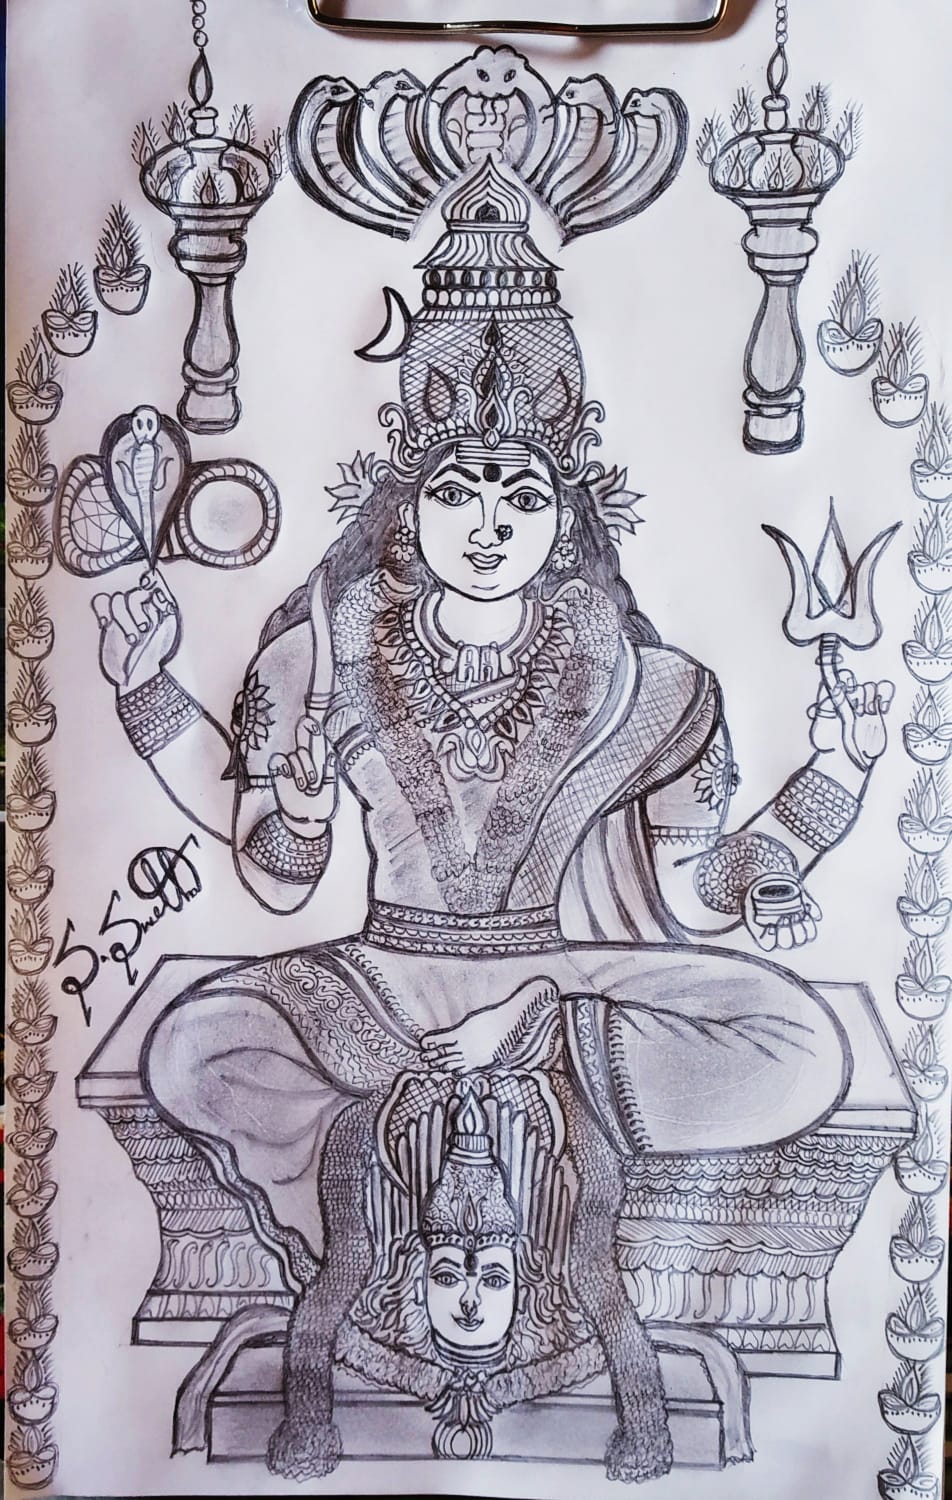 S. Swetha